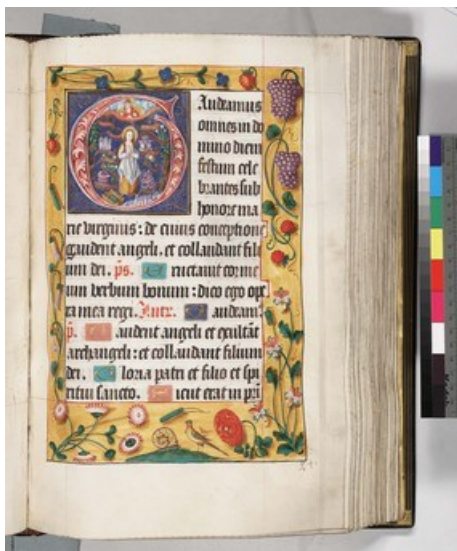 GAudeamus
omnes in do
mino diem
festum cele
brantes sub
honore ma
rie virginis : de cuius conceptione
gaudent angeli. et collaudant fili
um dei. ps. Eructauit cor me
um verbum bonum : dico ego ope
ra mea regi. Gaudeam9
p. Gaudent angeli et exultāt
archangeli : et collaudant filium
dei. Gloria patri et filio et spi
ritui sancto. Sicut erat in pri